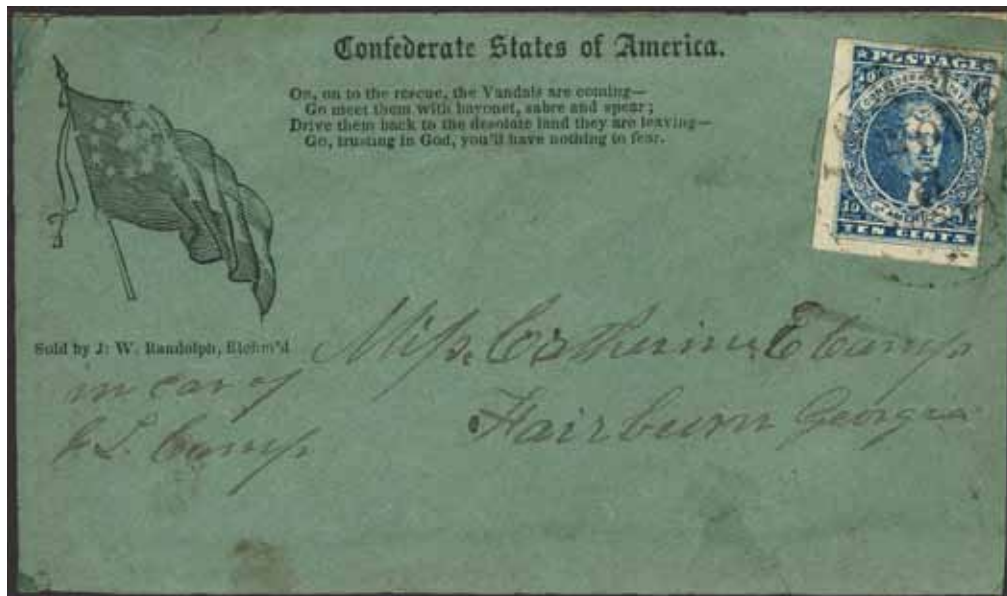 Confederate States of America.
On, on to the rescue, the Vandals are coming—
Go meet them with bayonet, sabre and spear;
Drive them back to the desolate land they are leaving—
Go, trusting in God, you'll have nothing to fear.
POSTAGE
10 10
CONFEDERATE STATES
OF AMERICA
10 10
TEN CENTS
Sold by J. W. Randolph, Richm'd
Miss. Catherine E Camp
in car of
Camp
Fairburn Georgia